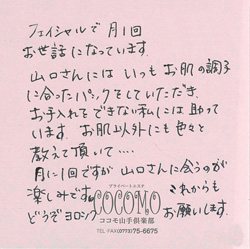 フェイシャルで月1回
お世話になっています。
山口さんにはいつもお肌の調子
に合ったパックをしていただき、
お手入れできない私には助って
います。お肌以外にも色々と
教えて頂いて‥‥
月に1回ですが山口さんに会うのが
楽しみです。これからも
どうぞヨロシクお願いします。
プライベートエステ
COCOMO
ココモ山手倶楽部
TEL・FAX(0773)75-6675